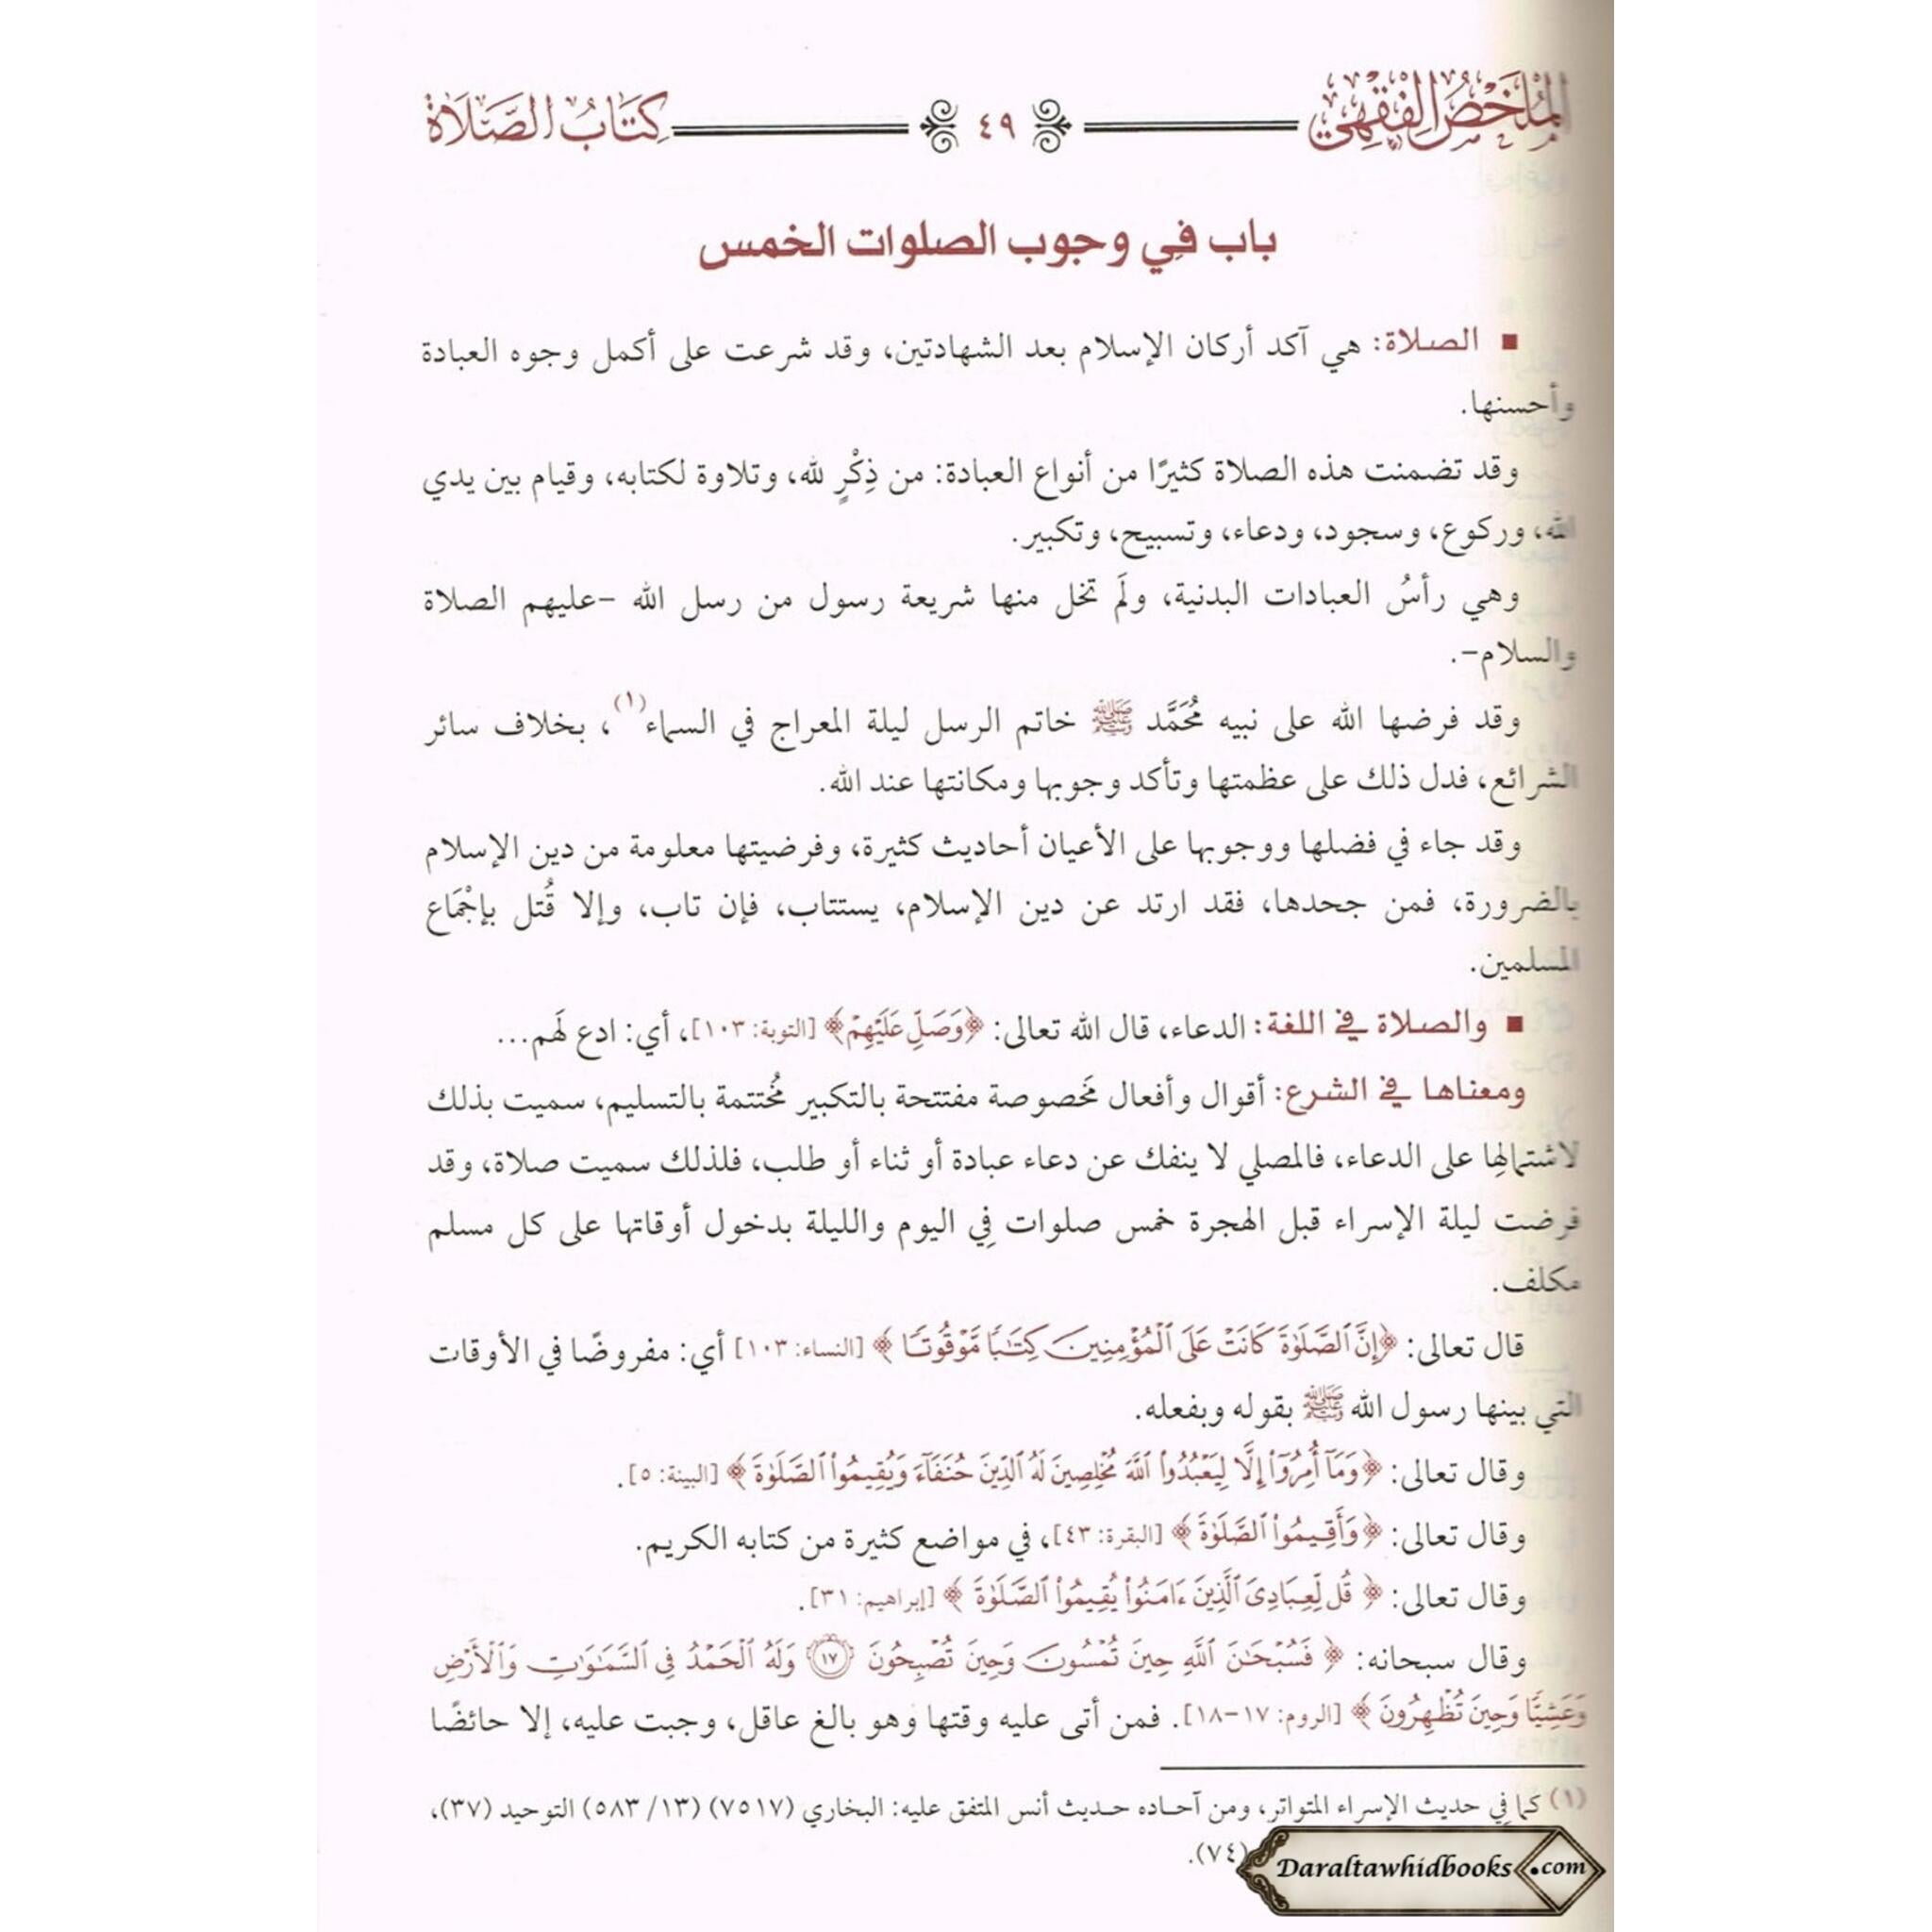 الملخص الفقهي ٤٩ كتاب الصلاة
باب في وجوب الصلوات الخمس
▪ الصلاة: هي آكد أركان الإسلام بعد الشهادتين، وقد شرعت على أكمل وجوه العبادة
وأحسنها.
وقد تضمنت هذه الصلاة كثيرًا من أنواع العبادة: من ذِكْرٍ لله، وتلاوة لكتابه، وقيام بين يدي
الله، وركوع، وسجود، ودعاء، وتسبيح، وتكبير.
وهي رأسُ العبادات البدنية، ولَم تخل منها شريعة رسول من رسل الله –عليهم الصلاة
والسلام–.
وقد فرضها الله على نبيه مُحَمَّد ﷺ خاتم الرسل ليلة المعراج في السماء(١)، بخلاف سائر
الشرائع، فدل ذلك على عظمتها وتأكد وجوبها ومكانتها عند الله.
وقد جاء في فضلها ووجوبها على الأعيان أحاديث كثيرة، وفرضيتها معلومة من دين الإسلام
بالضرورة، فمن جحدها، فقد ارتد عن دين الإسلام، يستتاب، فإن تاب، وإلا قُتل بإجْمَاع
المسلمين.
▪ والصلاة في اللغة: الدعاء، قال الله تعالى: ﴿وَصَلِّ عَلَيْهِمْ﴾ [التوبة: ١٠٣]، أي: ادع لَهم...
ومعناها في الشرع: أقوال وأفعال مَخصوصة مفتتحة بالتكبير مُختتمة بالتسليم، سميت بذلك
لاشتمالِها على الدعاء، فالمصلي لا ينفك عن دعاء عبادة أو ثناء أو طلب، فلذلك سميت صلاة، وقد
فرضت ليلة الإسراء قبل الهجرة خمس صلوات فِي اليوم والليلة بدخول أوقاتها على كل مسلم
مكلف.
قال تعالى: ﴿إِنَّ ٱلصَّلَوٰةَ كَانَتْ عَلَى ٱلْمُؤْمِنِينَ كِتَٰبًا مَّوْقُوتًا﴾ [النساء: ١٠٣] أي: مفروضًا في الأوقات
التي بينها رسول الله ﷺ بقوله وبفعله.
وقال تعالى: ﴿وَمَآ أُمِرُوٓا۟ إِلَّا لِيَعْبُدُوا۟ ٱللَّهَ مُخْلِصِينَ لَهُ ٱلدِّينَ حُنَفَآءَ وَيُقِيمُوا۟ ٱلصَّلَوٰةَ﴾ [البينة: ٥].
وقال تعالى: ﴿وَأَقِيمُوا۟ ٱلصَّلَوٰةَ﴾ [البقرة: ٤٣]، في مواضع كثيرة من كتابه الكريم.
وقال تعالى: ﴿قُل لِّعِبَادِىَ ٱلَّذِينَ ءَامَنُوا۟ يُقِيمُوا۟ ٱلصَّلَوٰةَ﴾ [إبراهيم: ٣١].
وقال سبحانه: ﴿فَسُبْحَٰنَ ٱللَّهِ حِينَ تُمْسُونَ وَحِينَ تُصْبِحُونَ ١٧ وَلَهُ ٱلْحَمْدُ فِى ٱلسَّمَٰوَٰتِ وَٱلْأَرْضِ
وَعَشِيًّا وَحِينَ تُظْهِرُونَ﴾ [الروم: ١٧–١٨]. فمن أتى عليه وقتها وهو بالغ عاقل، وجبت عليه، إلا حائضًا
(١) كما فِي حديث الإسراء المتواتر، ومن آحاده حديث أنس المتفق عليه: البخاري (٧٥١٧) (١٣/ ٥٨٣) التوحيد (٣٧)،
(٧٤).
Daraltawhidbooks.com